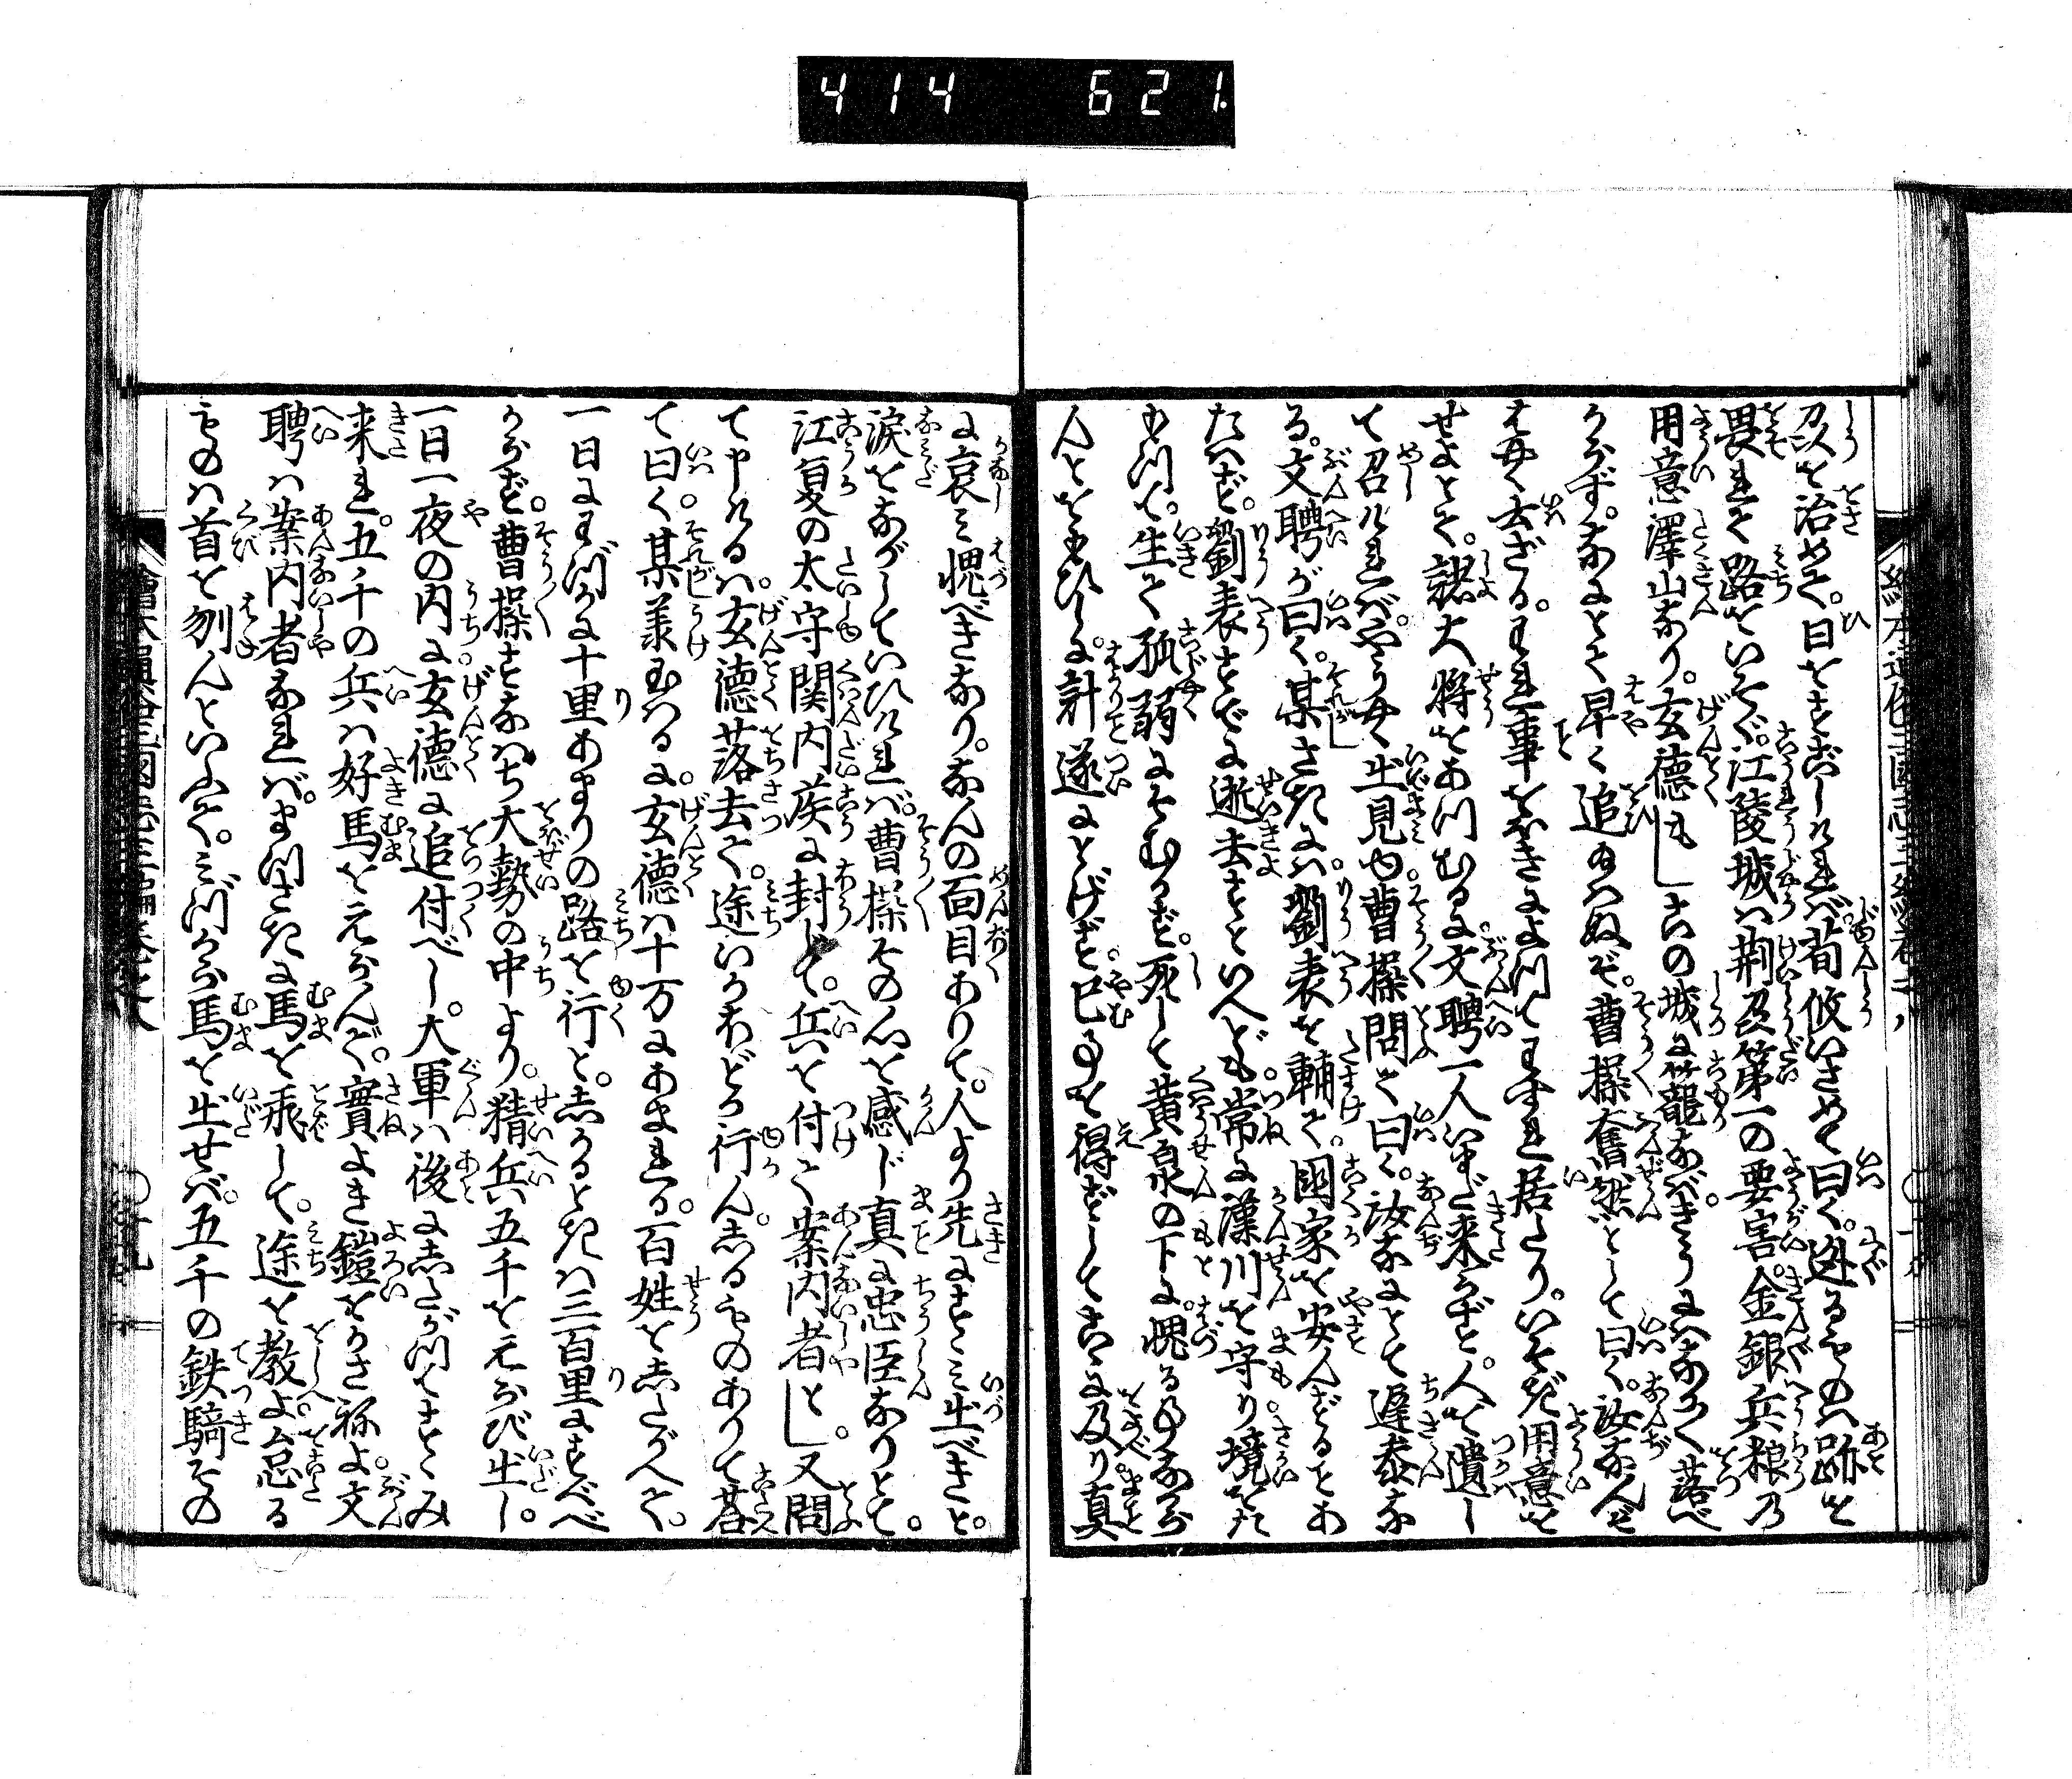 414 621.
刄を治めて。日をすごしければ。荀攸いさめて曰く。逃るものハ跡を
畏れて路をいそぐ。江陵城ハ荆及第一の要害。金銀兵粮乃
用意澤山なり。玄徳もしこの城に籠なバ。きうにハなかく落べ
からず。なにとて早く追給ハぬぞ。曹操奮然として曰く。汝なんぞ
はやく云ざる。われ事おほきによつてわすれ居たり。いそぎ用意を
せよとて。諸大将をあつむるに。文聘一人いまだ来らずと。人を遣し
て召ければ。やうやく出見ゆ。曹操問て曰く。汝なにとて遅参な
る。文聘が曰く。某さきにハ。劉表を輔て。國家を安んずることあ
たハず。劉表すでに逝去すといへども。常に漢川を守り境をた
もつて。生て孤弱にそむかず。死して黄泉の下に。愧る事なから
んとをもひしに。計遂にとげず。已事を得ずしてこゝに及り真
に哀ミ愧べきなり。なんの面目ありて。人より先にすゝミ出べきと。
涙をながしていひければ。曹操その心を感じ真に忠臣なりとて。
江夏の太守関内侯に封じて。兵を付て案内者とし。又問
て申けるハ。玄徳落去て。途いかほどか行ん。しるものありて荅
て曰く。某羕るに。玄徳ハ十万にあまれる。百姓をしたがへて。
一日にわづかに十里あまりの路を行と。しかるときハ三百里にすぐべ
からずと。曹操すなハち大勢の中より。精兵五千を元らび出し。
一日一夜の内に玄徳に追付べし。大軍ハ後にしたがつてすゝみ
来れ。五千の兵ハ好馬を元らんで。實よき鎧をかさねよ。文
聘ハ案内者なれバ。まつさきに馬を飛して。途を教よ怠る
ものハ首を刎んといふて。ミづから馬を出せバ。五千の鉄騎その